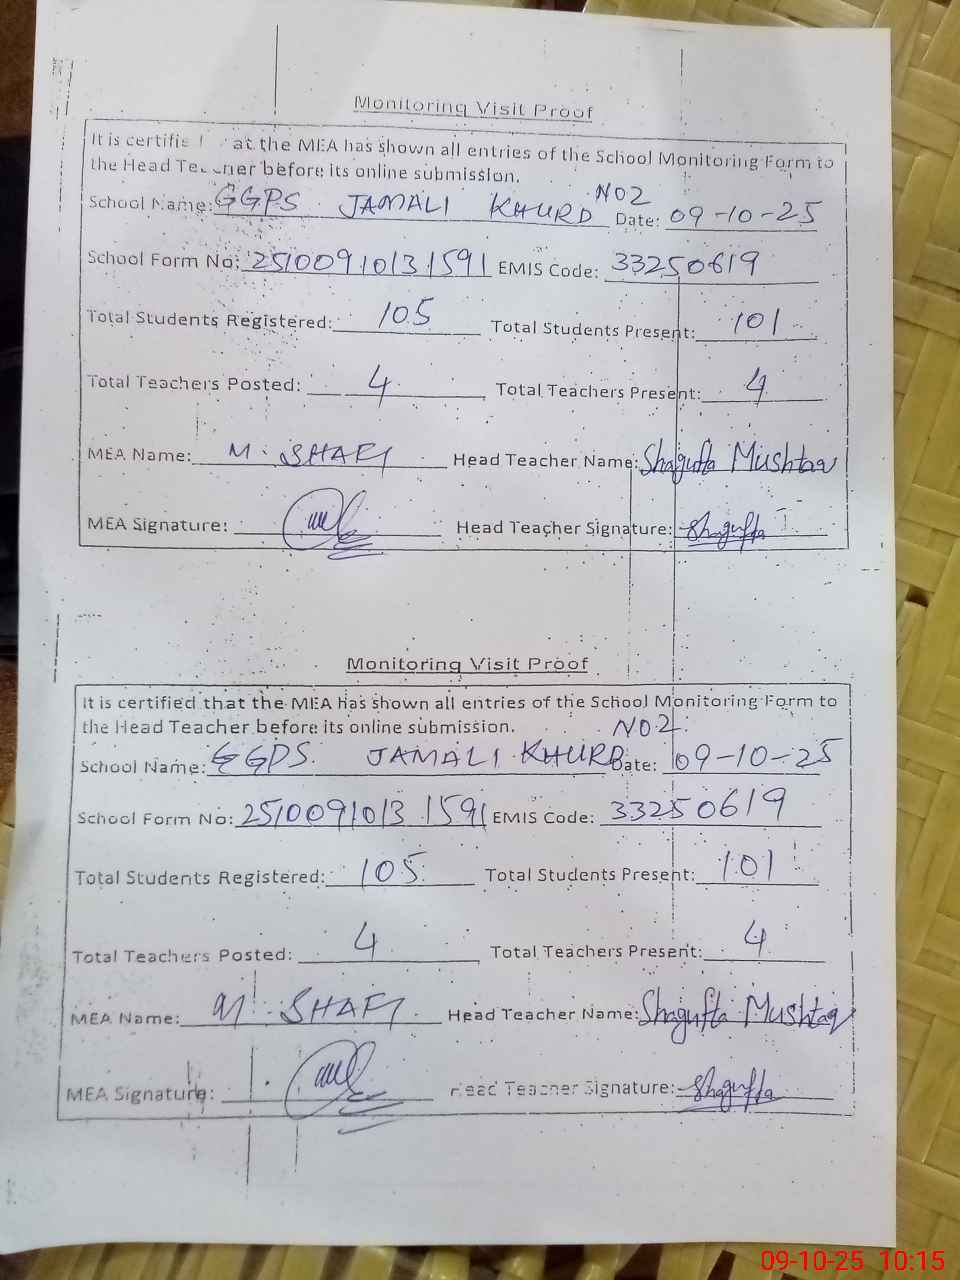 Monitoring Visit Proof
It is certifie at the MEA has shown all entries of the School Monitoring Form to
the Head Teacher before its online submission.
School Name: GGPS JAMALI KHURD NO2 Date: 09-10-25
School Form No: 25100910131591 EMIS Code: 33250619
Total Students Registered: 105 Total Students Present: 101
Total Teachers Posted: 4 Total Teachers Present: 4
MEA Name: M. SHAFI Head Teacher Name: Shagufta Mushtaq
MEA Signature: Head Teacher Signature: Shagufta
Monitoring Visit Proof
It is certified that the MEA has shown all entries of the School Monitoring Form to
the Head Teacher before its online submission.
School Name: GGPS. JAMALI KHURD NO2. Date: 09-10-25
School Form No: 25100910131591 EMIS Code: 33250619
Total Students Registered: 105 Total Students Present: 101
Total Teachers Posted: 4 Total Teachers Present: 4
MEA Name: M. SHAFI Head Teacher Name: Shagufta Mushtaq
MEA Signature: Head Teacher Signature: Shagufta
09-10-25 10:15